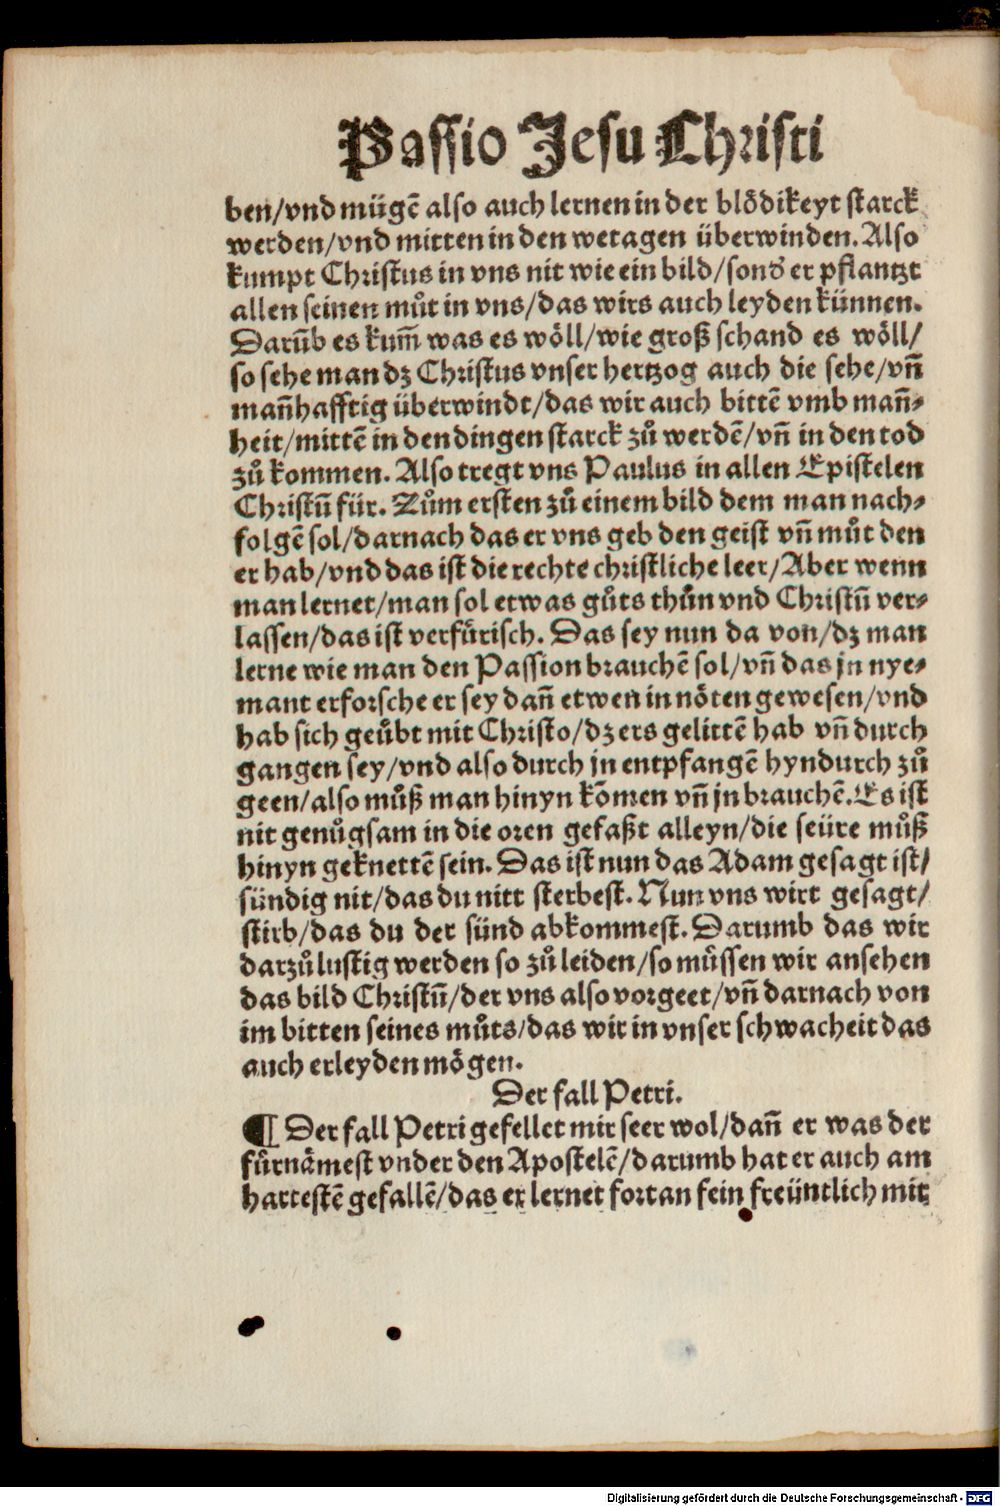 Passio Jesu Christi
ben/vnd mügē also auch lernen in der blödikeyt starck
werden/vnd mitten in den wetagen überwinden. Also
kumpt Christus in vns nit wie ein bild/sond' er pflantzt
allen seinen můt in vns/das wirs auch leyden künnen.
Darūb es kum̄ was es wöll/wie groß schand es wöll/
so sehe man dz Christus vnser hertzog auch die sehe/vñ
mañhafftig überwindt/das wir auch bittē vmb mañ⸗
heit/mittē in den dingen starck zů werdē/vñ in den tod
zů kommen. Also tregt vns Paulus in allen Epistelen
Christū für. Zům ersten zů einem bild dem man nach⸗
folgē sol/darnach das er vns geb den geist vñ můt den
er hab/vnd das ist die rechte christliche leer/Aber wenn
man lernet/man sol etwas gůts thůn vnd Christū ver⸗
lassen/das ist verfürisch. Das sey nun da von/dz man
lerne wie man den Passion brauchē sol/vñ das jn nye⸗
mant erforsche er sey dañ etwen in nöten gewesen/vnd
hab sich geůbt mit Christo/dz ers gelittē hab vñ durch
gangen sey/vnd also durch jn entpfangē hyndurch zů
geen/also můß man hinyn kōmen vñ jn brauchē. Es ist
nit genůgsam in die oren gefaßt alleyn/die seüre můß
hinyn geknettē sein. Das ist nun das Adam gesagt ist/
sündig nit/das du nitt sterbest. Nun vns wirt gesagt/
stirb/das du der sünd abkommest. Darumb das wir
darzů lustig werden so zů leiden/so müssen wir ansehen
das bild Christū/der vns also vorgeet/vñ darnach von
im bitten seines můts/das wir in vnser schwacheit das
auch erleyden mögen.
Der fall Petri.
¶ Der fall Petri gefellet mir seer wol/dañ er was der
fürnämest vnder den Apostelē/darumb hat er auch am
hartestē gefallē/das er lernet fortan fein freüntlich mit
Digitalisierung gefördert durch die Deutsche Forschungsgemeinschaft - DFG